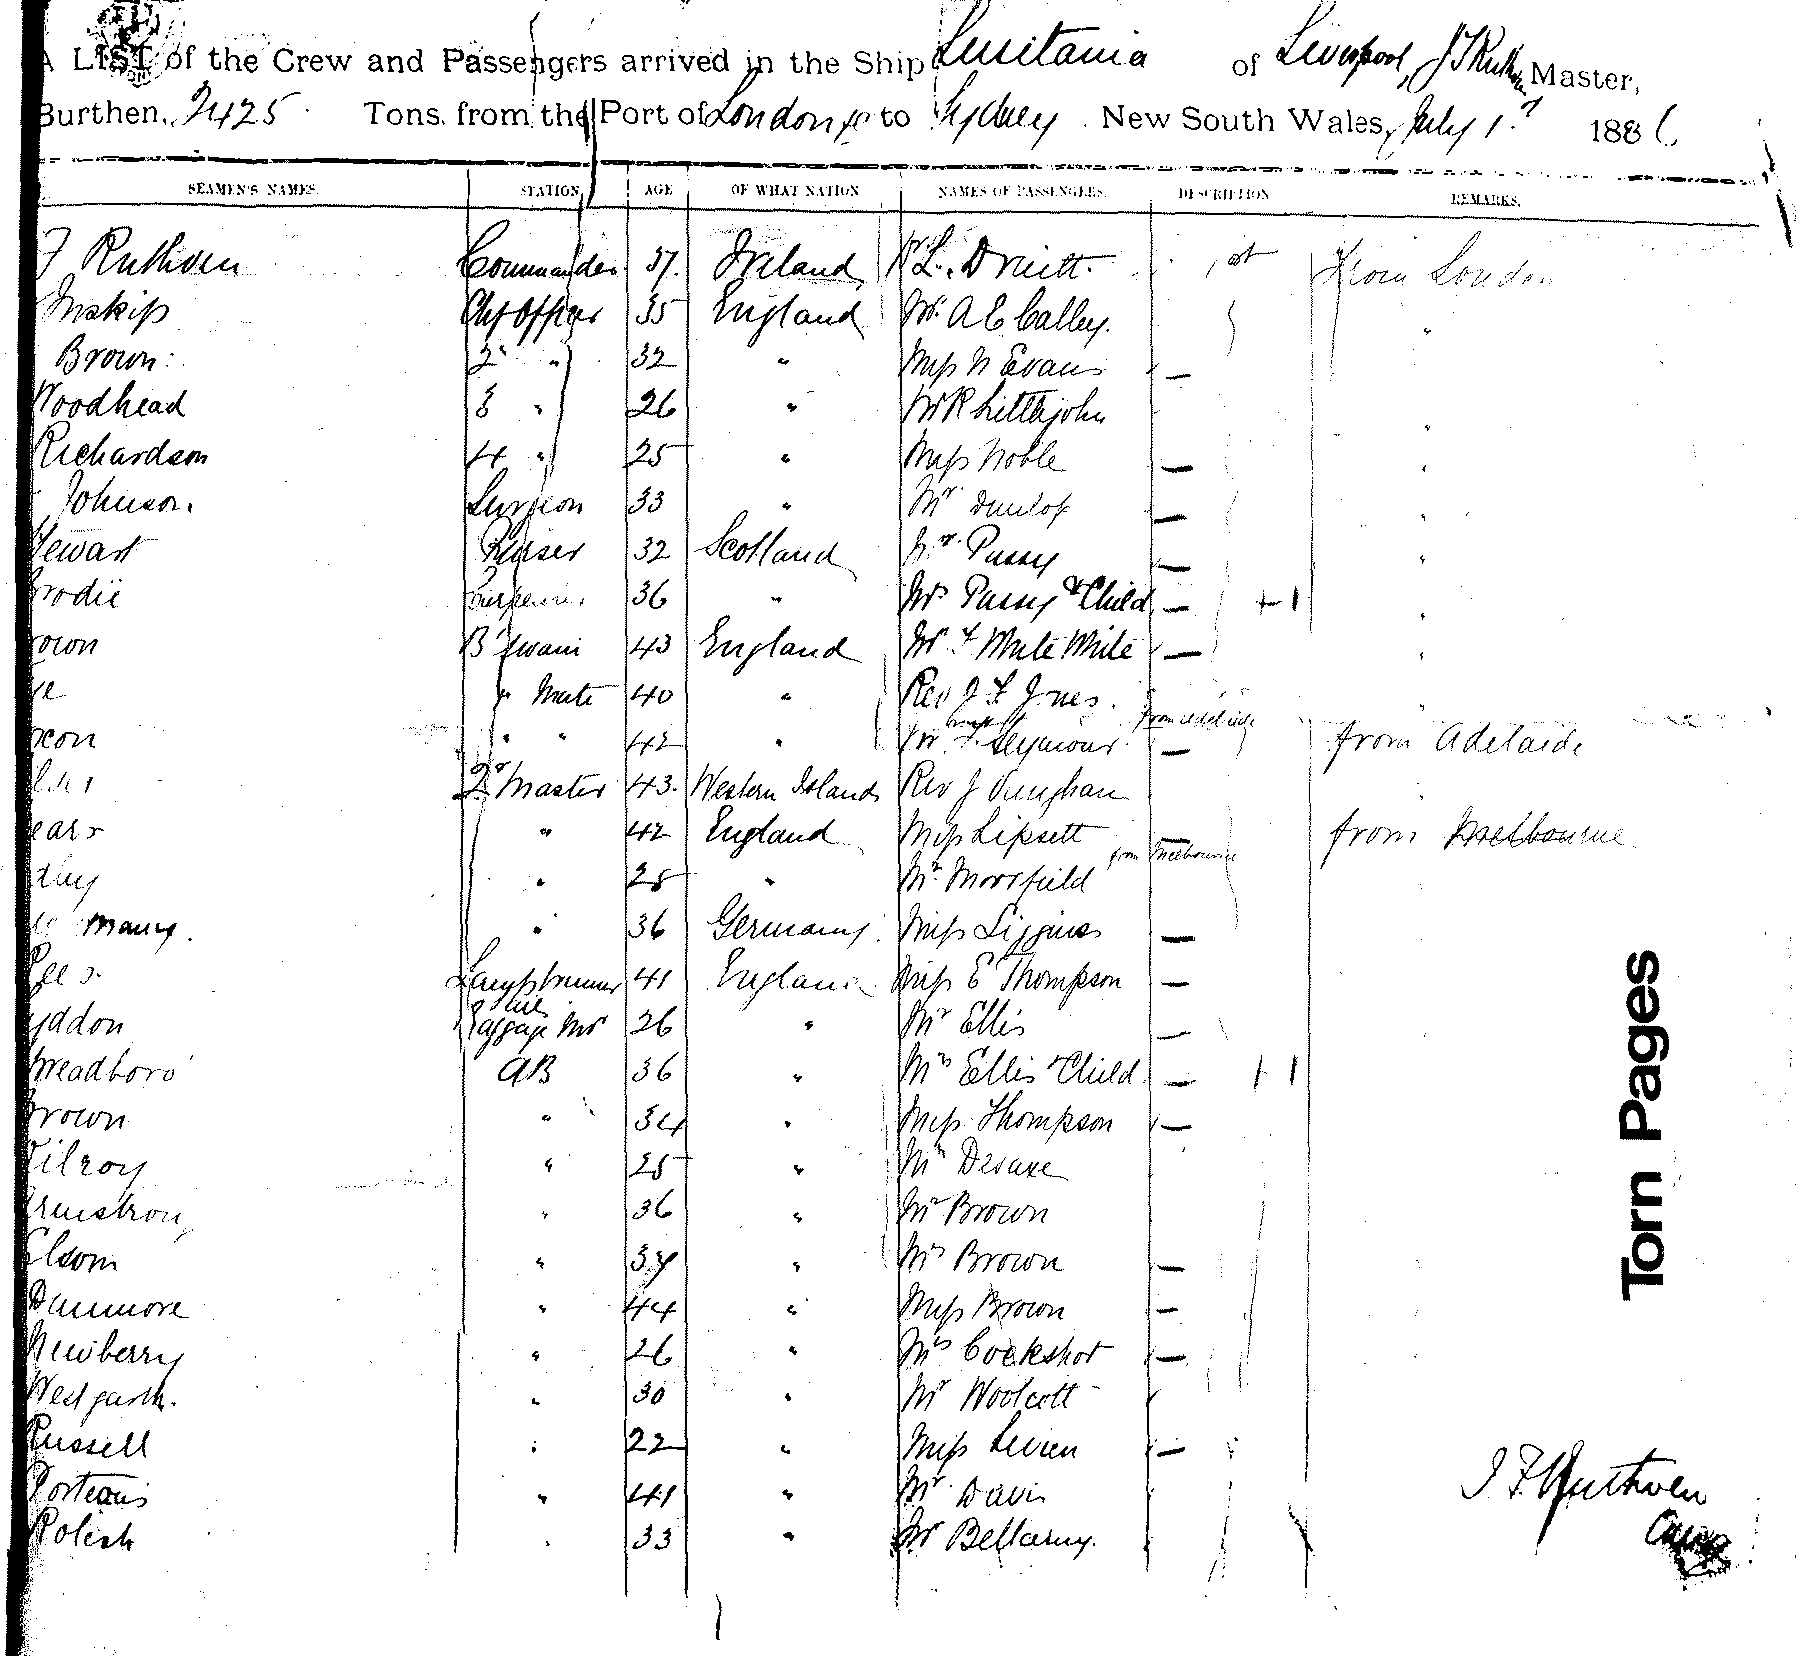 A LIST of the Crew and Passengers arrived in the Ship Lusitania of Liverpool, J F Ruthven Master,
Burthen, 2425 Tons from the Port of London &c to Sydney New South Wales, July 1st 1886
SEAMEN'S NAMES. STATION AGE OF WHAT NATION NAMES OF PASSENGERS. DESCRIPTION REMARKS.
F Ruthven Commander 37. Ireland Mr L. Druitt 1st From London
Inskip Chf Officer 35 England Mr A E Calley. "
Brown 2 " 32 " Miss N Evans —
Woodhead 3 " 26 " Mr R Littlejohn "
Richardson 4 " 25 " Miss Noble — "
Johnson. Surgeon 33 " Mr Dunlop — "
Stewart Purser 32 Scotland Mr Passy — "
Brodie Carpenter 36 " Mrs Passy & Child — + 1 "
rown B'swain 43 England Mr F White —
" Mate 40 " Rev J F Jones.
" " 42 " Seymour from Adelaide — from Adelaide
Qr Master 43. Western Islands Rev J Vaughan
ears " 42 England Miss Lipsett — from Melbourne
" 25 " Mr Moorfield from Melbourne
many. " 36 Germany Miss Liggins —
Lamptrimmer 41 England Miss E Thompson —
yddon Baggage Mr 26 " Mr Ellis —
AB 36 " Mrs Ellis & Child — + 1
Brown " 34 " Miss Thompson —
Gilroy " 25 " Mr
Armstrong " 36 " Mr Brown
Elsom " 37 " Mrs Brown —
" 44 " Miss Brown —
Newberry " 26 " Mrs Cockshot —
Westgarth. " 30 " Mr Woolcott
Russell " 22 " Miss Levien —
Porteous " 41 " Mr Davis
33 " Mr Bellamy.
J F Ruthven
Torn Pages